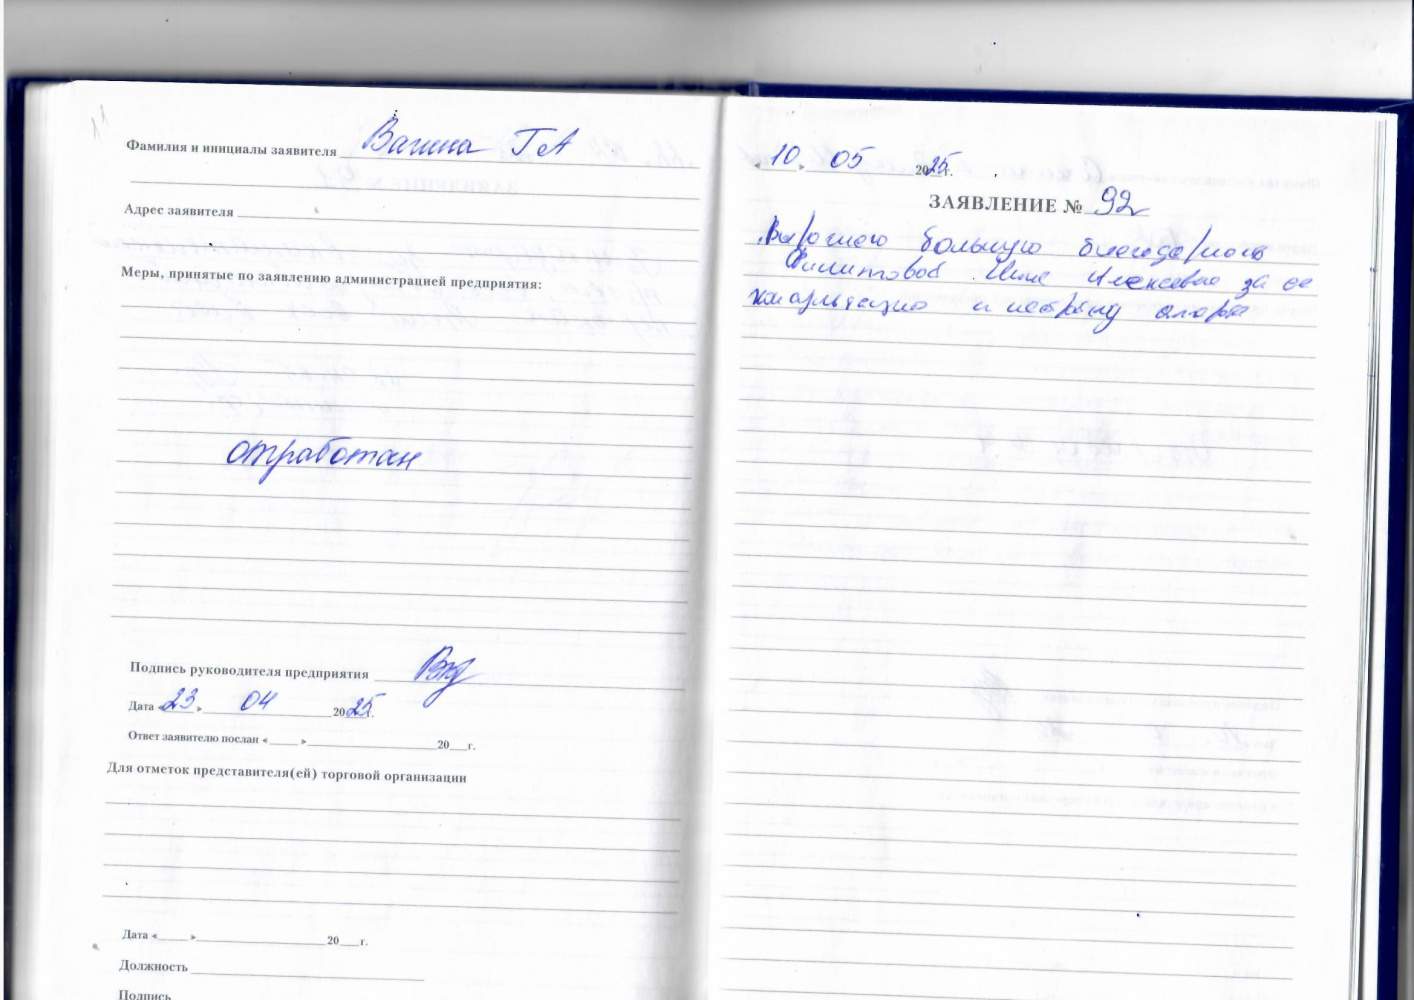 Фамилия и инициалы заявителя Вагина Г А
Адрес заявителя
Меры, принятые по заявлению администрацией предприятия:
отработан
Подпись руководителя предприятия
Дата «23» 04 2025г.
Ответ заявителю послан «» 20 г.
Для отметок представителя(ей) торговой организации
Дата «» 20 г.
Должность
Подпись
«10» 05 2025г.
ЗАЯВЛЕНИЕ № 92
Выражаю большую благодарность
Филипповой Алексевне за ее
консультацию и